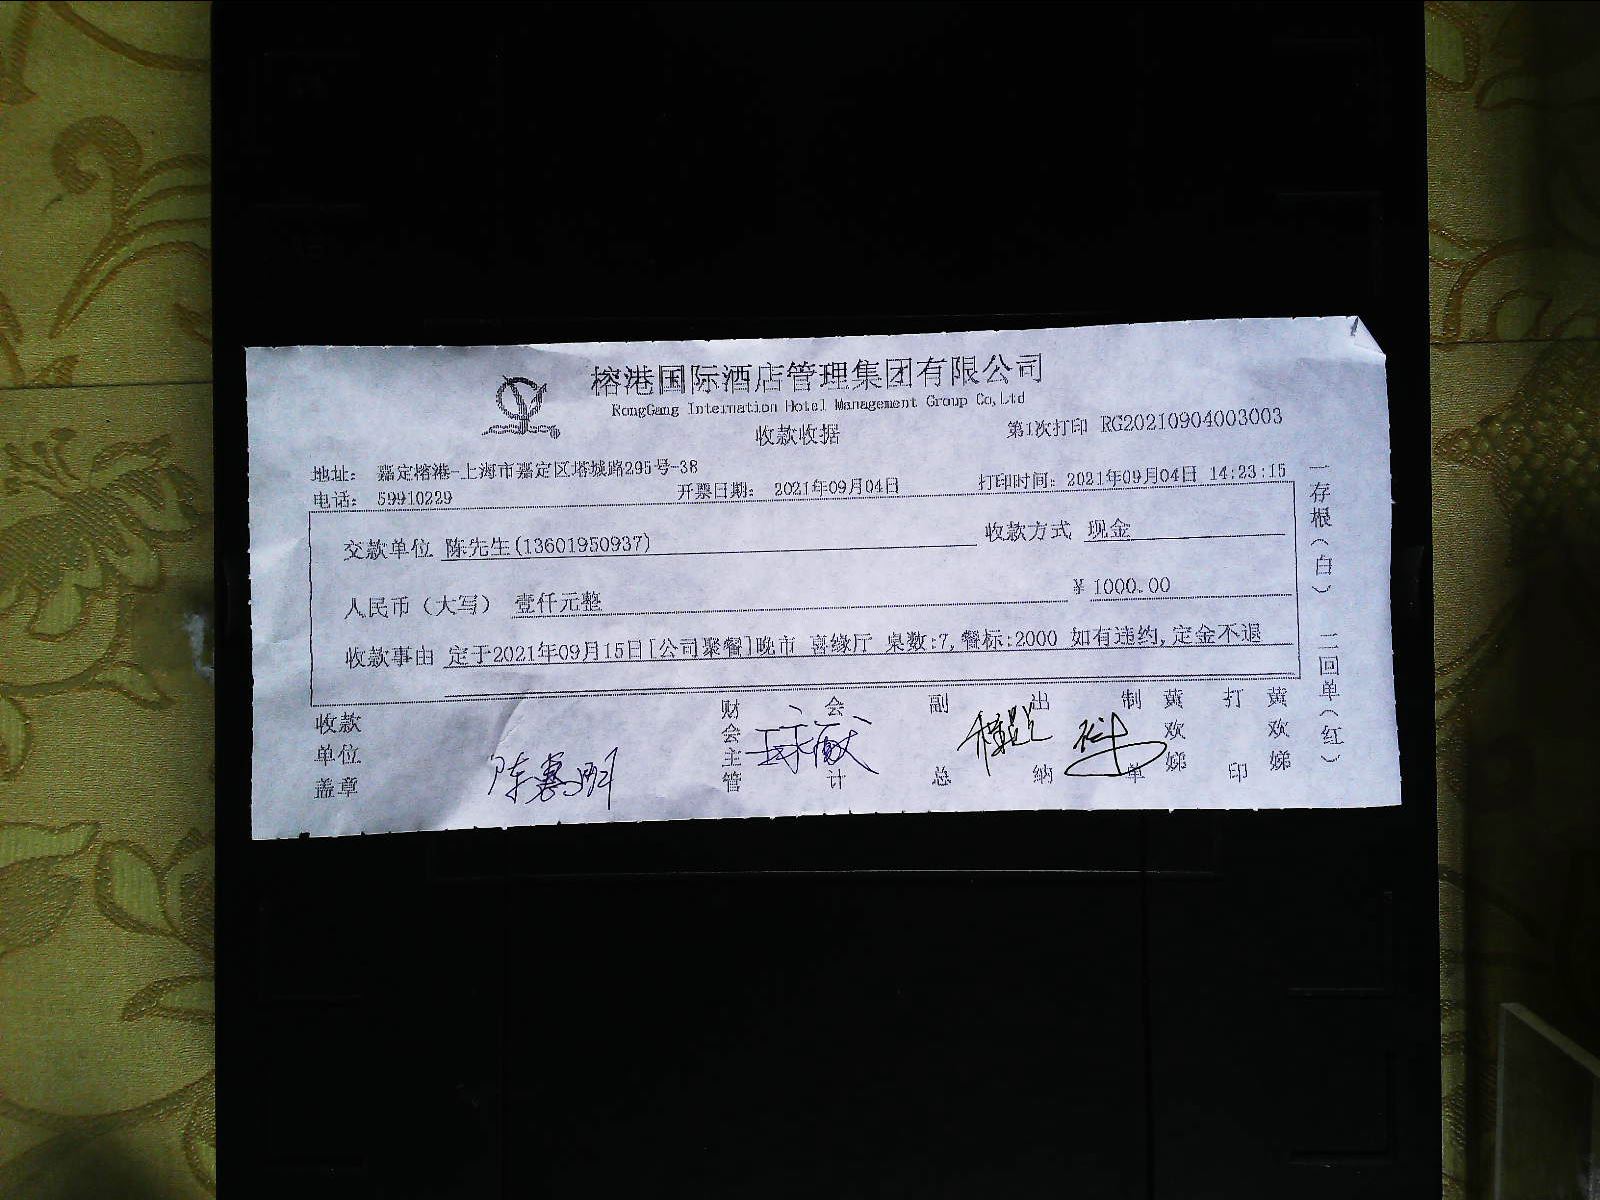 榕港国际酒店管理集团有限公司
RongGang Internation Hotel Management Group Co,Ltd
收款收据
第1次打印 RG20210904003003
地址： 嘉定榕港-上海市嘉定区塔城路295号-38
电话： 59910229
开票日期： 2021年09月04日
打印时间： 2021年09月04日 14:23:15
交款单位 陈先生(13601950937)
收款方式 现金
人民币（大写） 壹仟元整
¥ 1000.00
收款事由 定于2021年09月15日[公司聚餐]晚市 喜缘厅 桌数:7,餐标:2000 如有违约,定金不退
收款单位盖章
财会主管
会计
副总
出纳
制单
黄欢娣
打印
黄欢娣
一存根（白） 二回单（红）